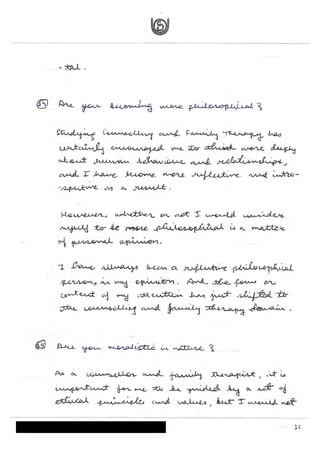 -tal.
64 Are you becoming more philosophical?
Studying Counselling and Family Therapy has
certainly encouraged me to think more deeply
about human behaviour and relationships,
and I have become more reflective and intro-
spective as a result.
However, whether or not I would consider
myself to be more philosophical is a matter
of personal opinion.
I have always been a reflective philosophical
person, in my opinion. And, the focus or
content of my attention has just shifted to
the counselling and family therapy domain.
65 Are you moralistic in nature?
As a counsellor and family therapist, it is
important for me to be guided by a set of
ethical principles and values, but I would not